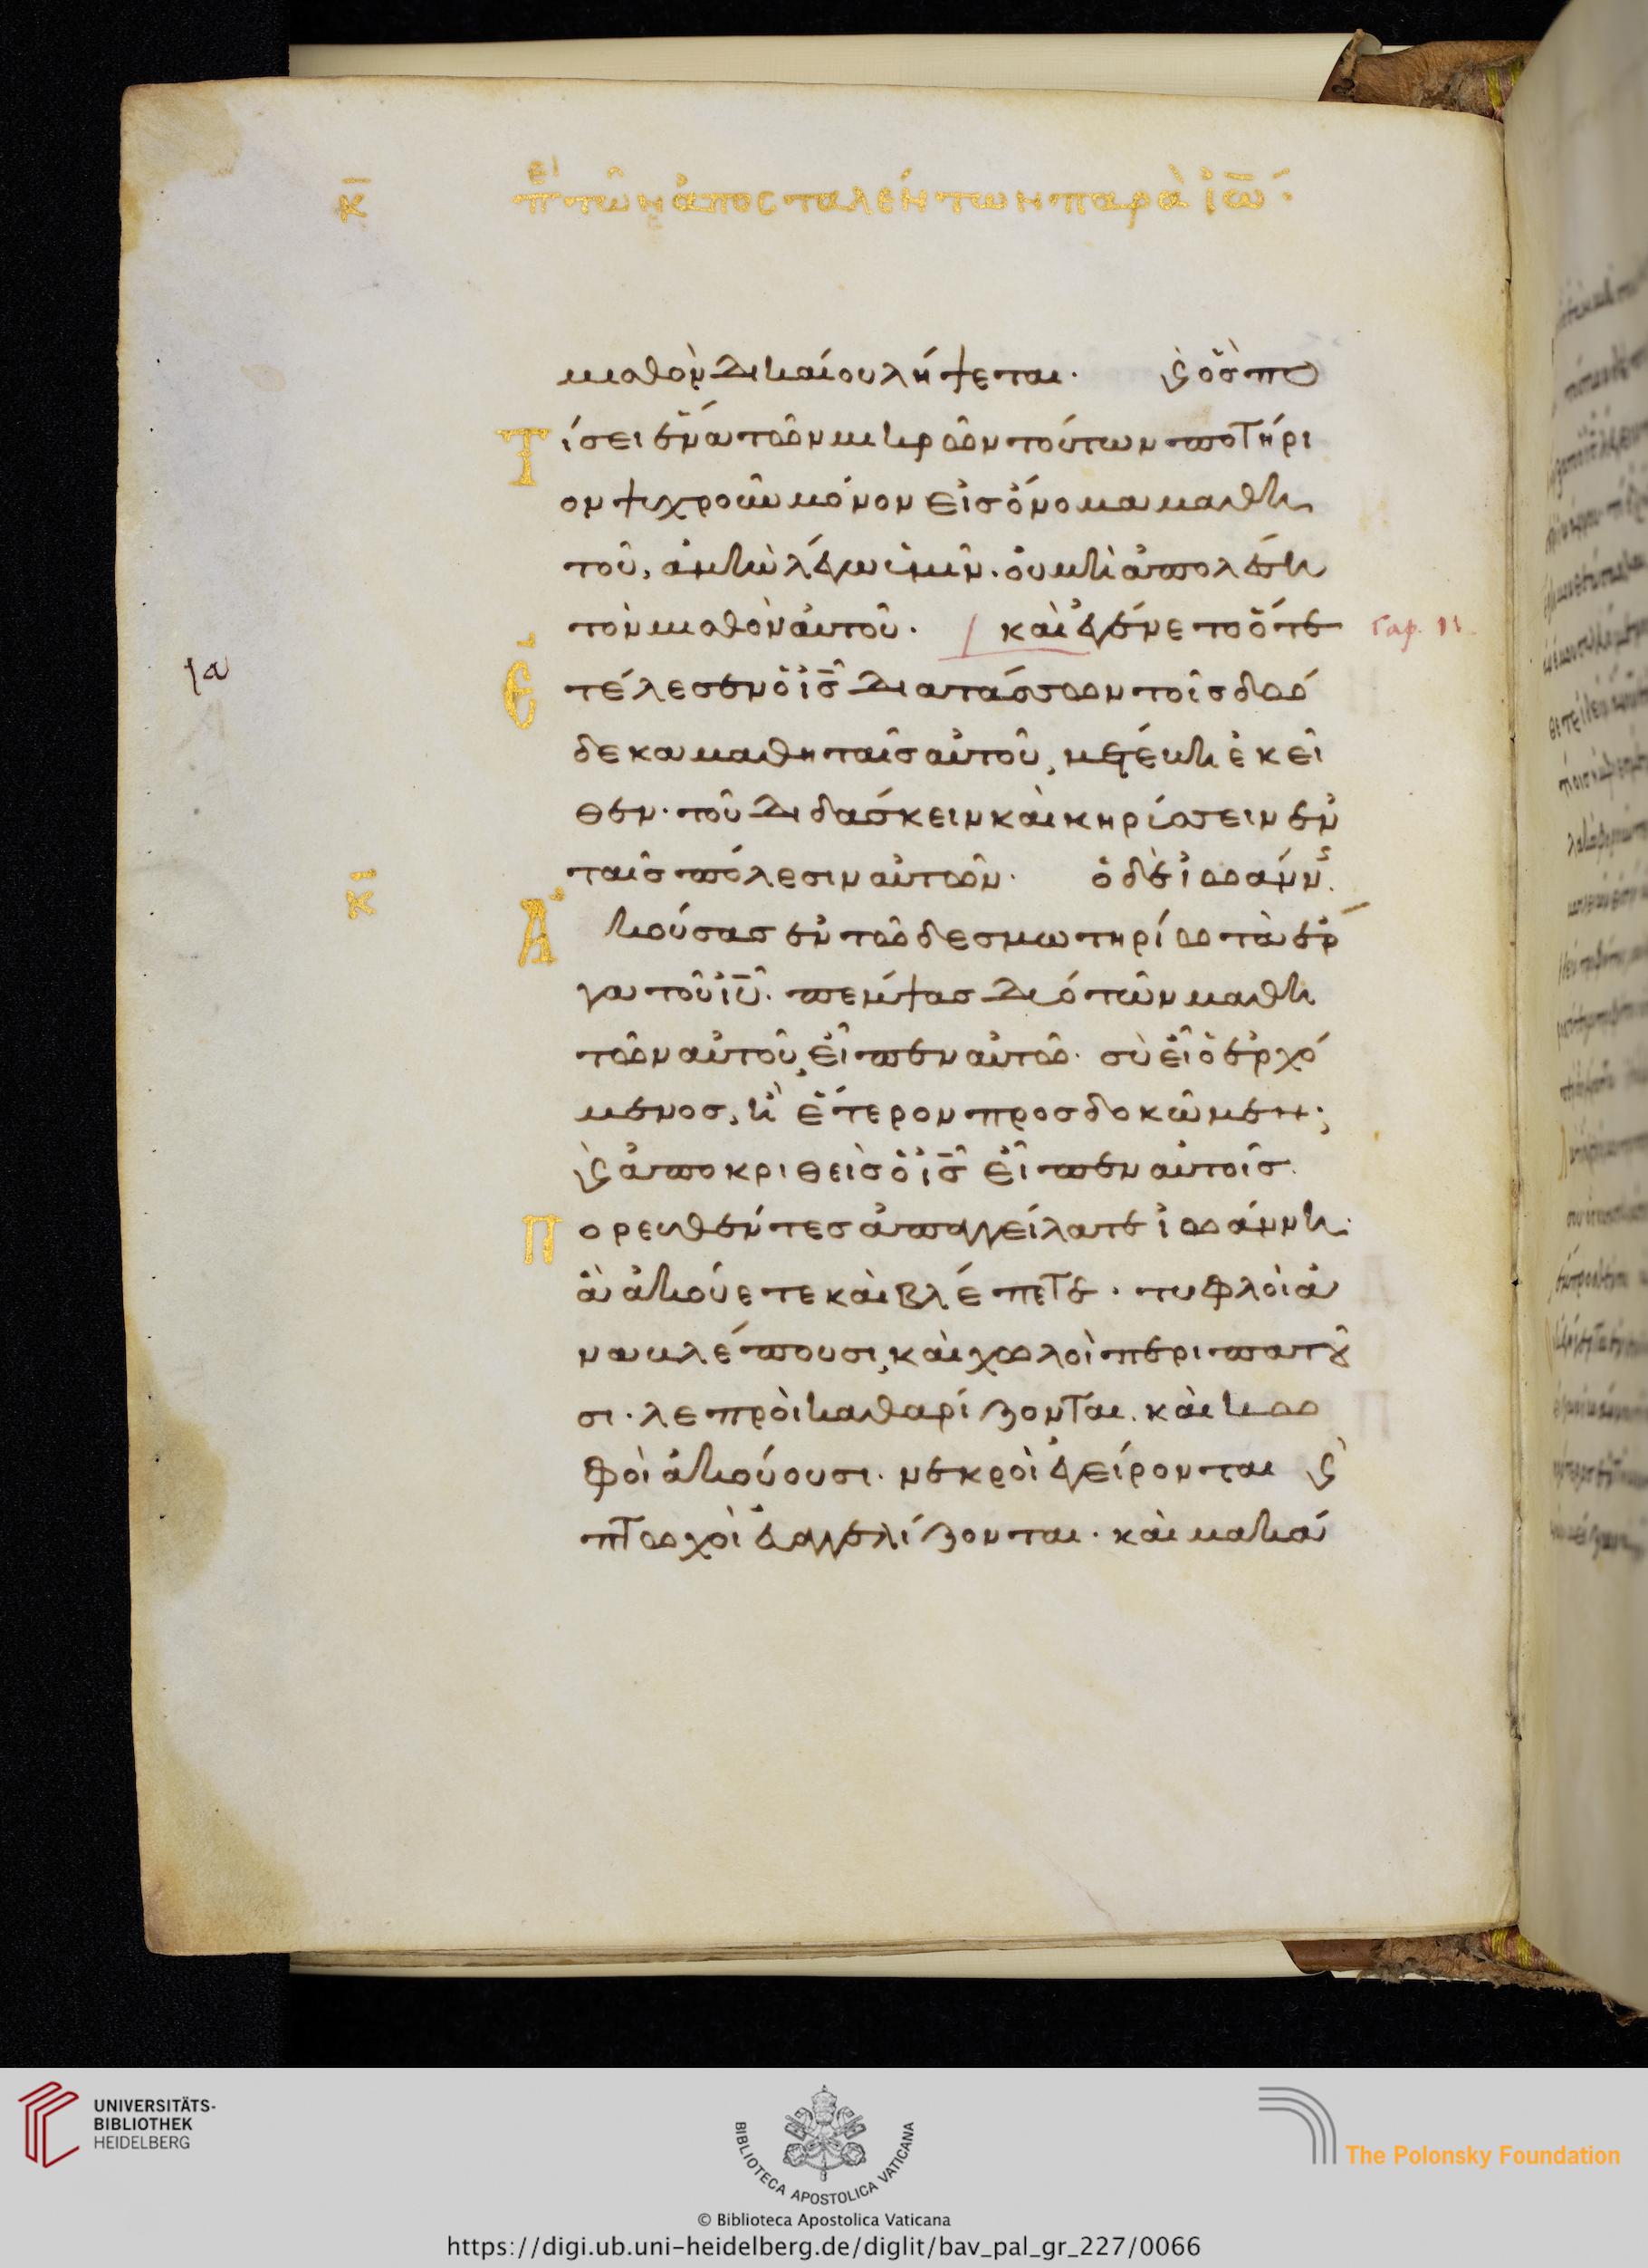 κ̄ πε̣ὶ τῶν ἀποσταλέντων παρὰ ἰω̄:
μισθὸν δικαίου λήψεται. ϗ ὃς πο
Τίσει ἕνα τῶν μικρῶν τούτων ποτήρι
ον ψυχροῦ μόνον εἰς ὄνομα μαθη
τοῦ, ἀμὴν λέγω ὑμῖν. οὐ μὴ ἀπολέση
τὸν μισθὸν αὐτοῦ. / καὶ ἐγένετο ὅτε Cap. 11.
γα Ἐτέλεσεν ὁ ἰς̄ διατάσσων τοῖς δώ
δεκα μαθηταῖς αὐτοῦ, μετέβη ἐκεῖ
θεν. τοῦ διδάσκειν καὶ κηρύσσειν ἐν
ταῖς πόλεσιν αὐτῶν. ὁ δὲ ἰωάννς
κ̄ Ἀκούσας ἐν τῶ δεσμωτηρίω τὰ ἔρ
γα τοῦ ἰῡ. πέμψας δύο τῶν μαθη
τῶν αὐτοῦ, εἶπεν αὐτῶ. σὺ εἶ ὁ ἐρχό
μενος, ἢ ἕτερον προσδοκῶμεν;
ϗ ἀποκριθεὶς ὁ ἰς̄ εἶπεν αὐτοῖς.
Πορευθέντες ἀπαγγείλατε ἰωάννη.
ἃ ἀκούετε καὶ βλέπετε. τυφλοὶ ἀ
ναβλέπουσι, καὶ χωλοὶ περιπατοῦ
σι. λεπροὶ καθαρίζονται. καὶ κω
φοὶ ἀκούουσι. νεκροὶ ἐγείρονται ϗ
πτωχοὶ εὐαγγελίζονται. καὶ μακά
UNIVERSITÄTS-
BIBLIOTHEK
HEIDELBERG
BIBLIOTECA APOSTOLICA VATICANA
The Polonsky Foundation
© Biblioteca Apostolica Vaticana
https://digi.ub.uni-heidelberg.de/diglit/bav_pal_gr_227/0066